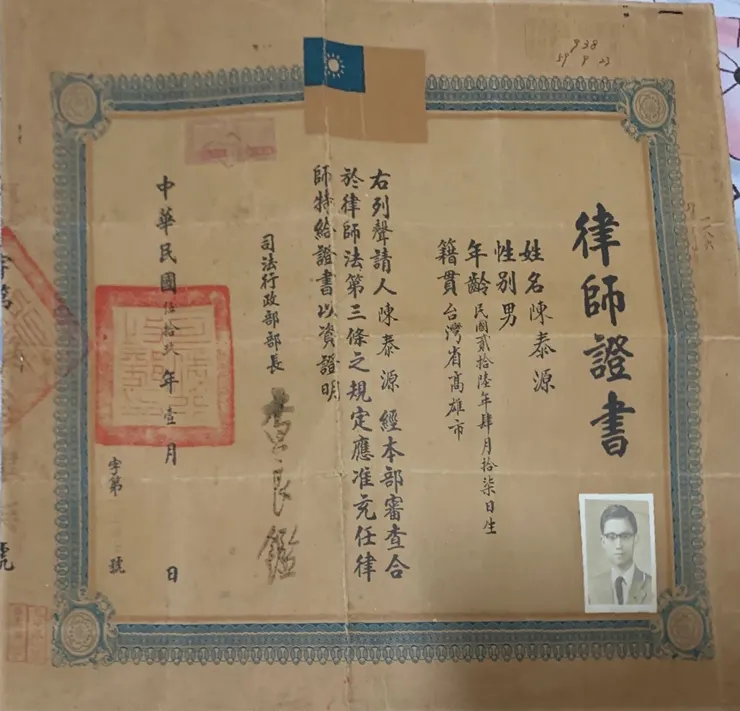 律師證書
姓名陳泰源
性別男
年齡民國貳拾陸年肆月拾柒日生
籍貫台灣省高雄市
右列聲請人陳泰源經本部審查合
於律師法第三條之規定應准充任律
師特給證書以資證明
司法行政部部長
中華民國伍拾玖年壹月 日
字第 號
938
59 9 23
字第
號